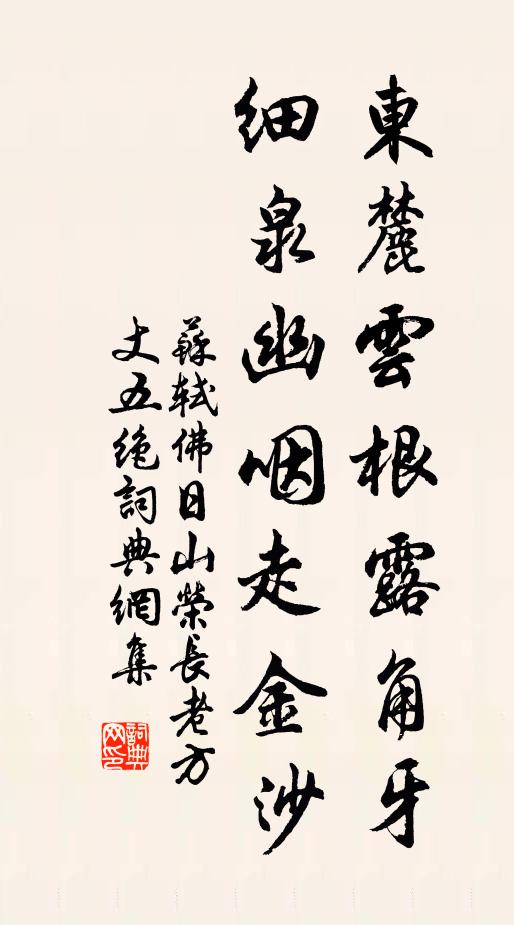 東麓雲根露角牙
細泉幽咽走金沙
蘇軾佛日山榮長老方
丈五絶詞典網集
詞典网印